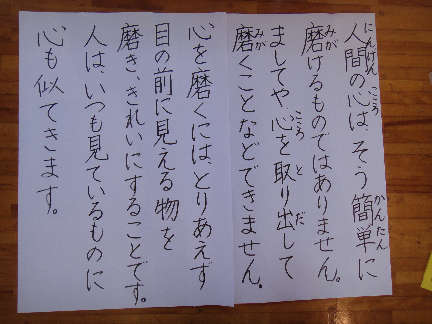 人間の心は、そう簡単に
磨けるものではありません。
ましてや、心を取り出して
磨くことなどできません。
心を磨くには、とりあえず
目の前に見える物を
磨き、きれいにすることです。
人は、いつも見ているものに
心も似てきます。
にんげん
こころ
かんたん
みが
こころ
と
だ
みが